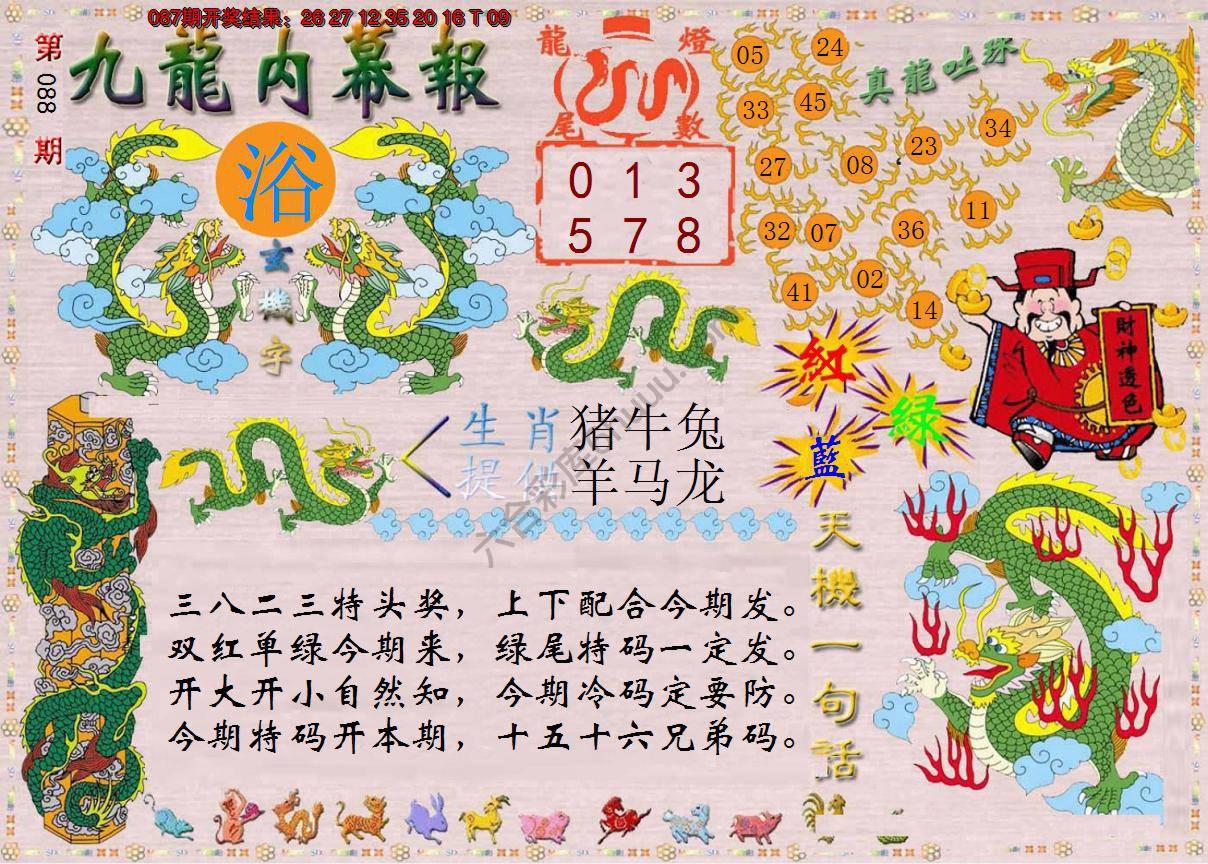 087期开奖结果：26 27 12 35 20 16 T 09
第088期
九龍内幕報
浴
玄機字
龍燈
尾數
0 1 3
5 7 8
真龍吐珠
05 24
33 45
27 08 23 34
32 07 36 11
41 02 14
財神透色
紅
绿
藍
生肖 猪牛兔
提供 羊马龙
天機一句話
三八二三特头奖，上下配合今期发。
双红单绿今期来，绿尾特码一定发。
开大开小自然知，今期冷码定要防。
今期特码开本期，十五十六兄弟码。